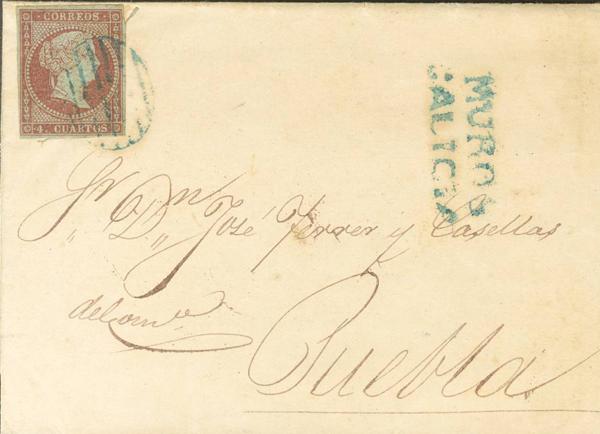 CORREOS
4. CUARTOS
MUROS
GALICIA
Sr. Dn. José Ferrer y Casellas
del com.o
Puebla